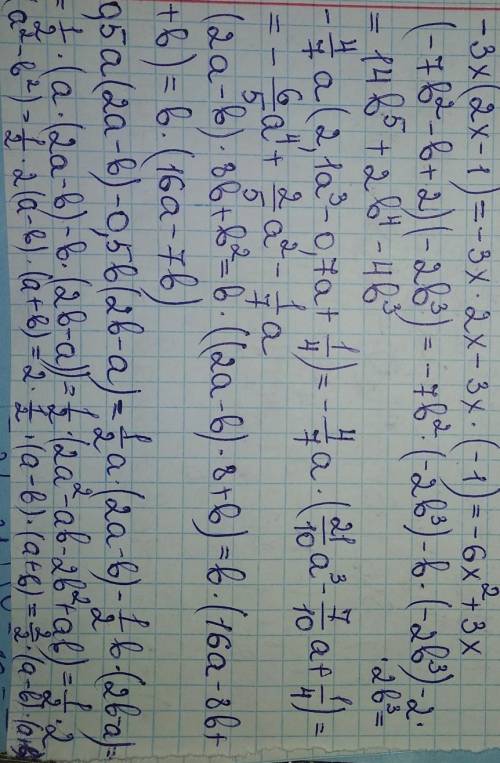 -3x(2x-1)=-3x·2x-3x·(-1)=-6x²+3x
(-7b²-b+2)(-2b³)=-7b²·(-2b³)-b·(-2b³)-2·
·2b³=
=14b⁵+2b⁴-4b³
-4/7a(2,1a³-0,7a+1/4)=-4/7a·(21/10a³-7/10a+1/4)=
=-6/5a⁴+2/5a²-1/7a
(2a-b)·8b+b²=b·((2a-b)·8+b)=b·(16a-8b+
+b)=b·(16a-7b)
0,5a(2a-b)-0,5b(2b-a)=1/2a·(2a-b)-1/2b·(2b-a)=
=1/2·(a·(2a-b)-b·(2b-a))=1/2·(2a²-ab-2b²+ab)=1/2·2
(a²-b²)=1/2·2(a-b)·(a+b)=2·1/2·(a-b)·(a+b)=2/2·(a-b)·(a+b)